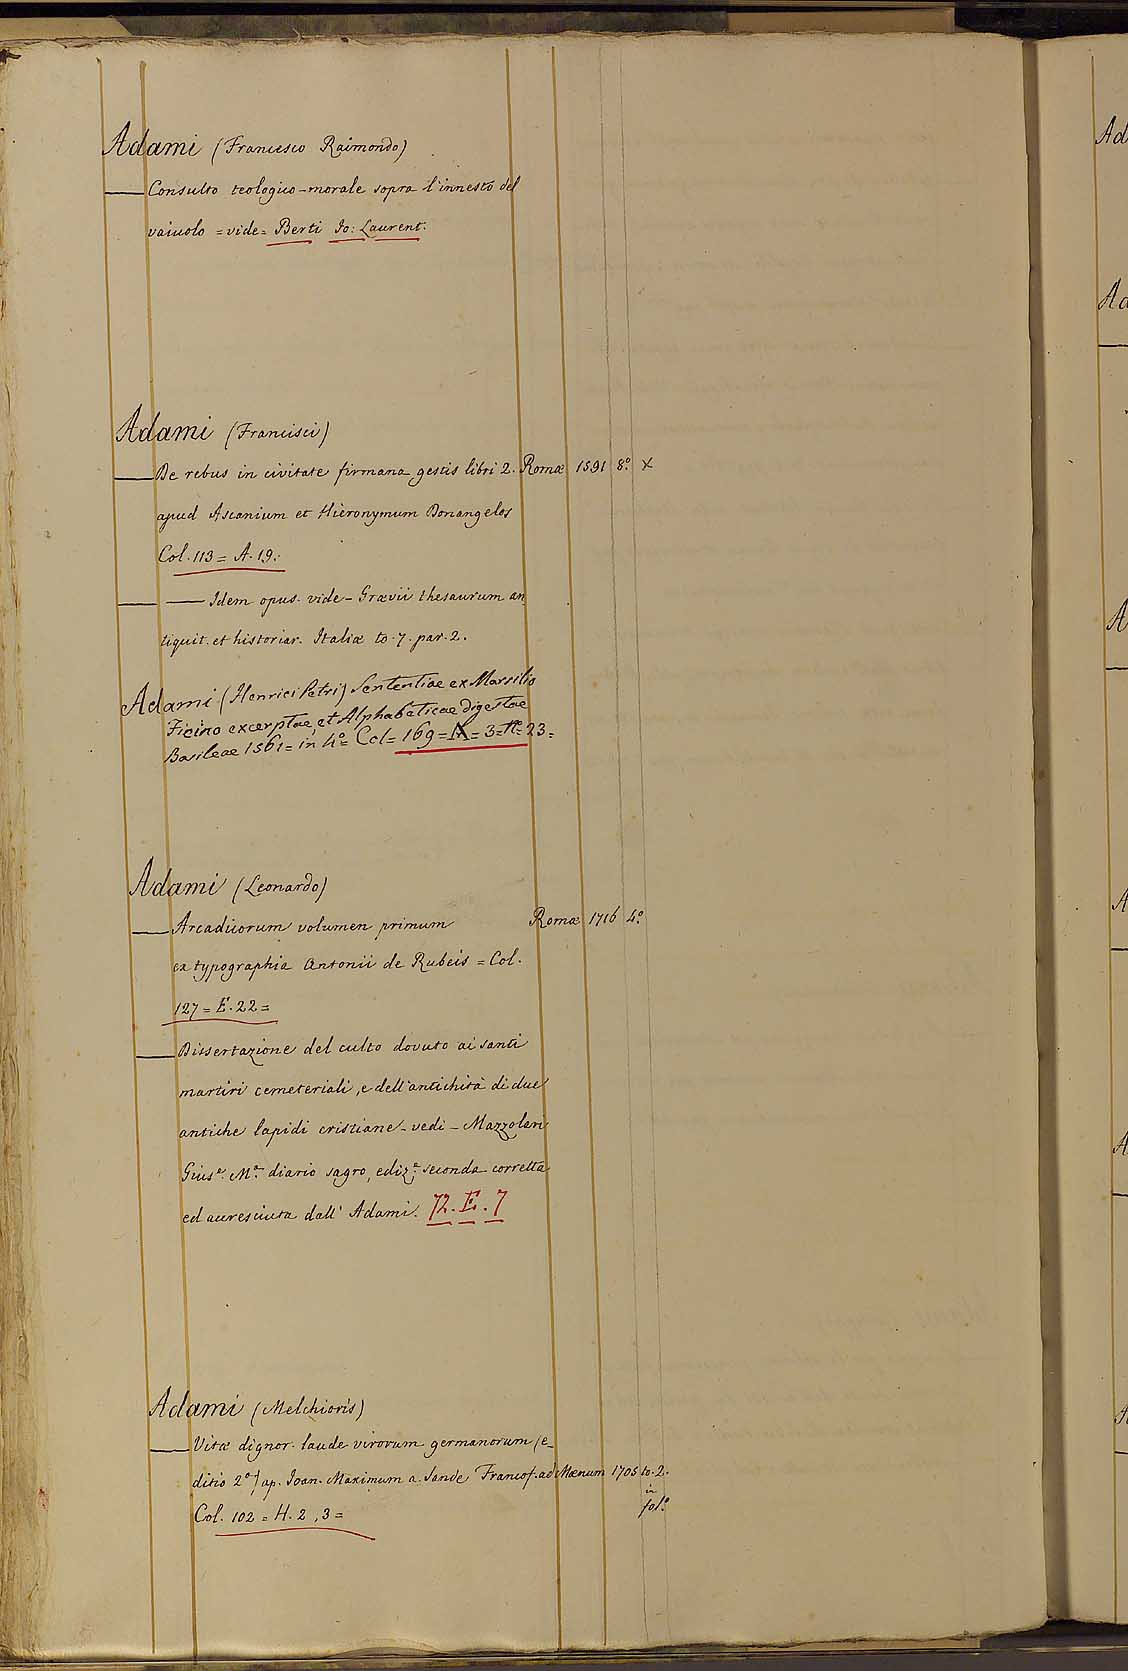 Adami (Francesco Raimondo)
Consulto teologico-morale sopra l'innesto del
vaiuolo = vide = Berti Jo: Laurent:
Adami (Francisci)
De rebus in civitate firmana gestis libri 2. Romæ 1591 8.º x
apud Ascanium et Hieronymum Donangelos
Col. 113 = A. 19:
Idem opus. vide - Grævii thesaurum an,
tiquit. et historiar. Italiæ to. 7. par. 2.
Adami (Henrici Petri) Sententiae ex Marsilio
Ficino excerptae, et Alphabeticae digestae
Basileae 1561 = in 4º = Col = 169 = A = 3 = nº = 23 =
Adami (Leonardo)
Arcadiiorum volumen primum Romæ 1716 4.º
ex typographia Antonii de Rubeis = Col.
127 = E. 22 =
Dissertazione del culto dovuto ai santi
martiri cemeteriali, e dell'antichità di due
antiche lapidi cristiane - vedi - Mazzolari
Giusᵉ. Mᵃ. diario sagro, edizᵉ. seconda corretta
ed accresciuta dall' Adami. 72. E. 7
Adami (Melchioris)
Vitæ dignor. laude virorum germanorum (e_
ditio 2ª) ap. Joan. Maximum a Sande Francof. ad Mœnum 1705 to. 2.
in
fol.º
Col. 102 = H. 2, 3 =
Ad
Ad
A
A
A
A